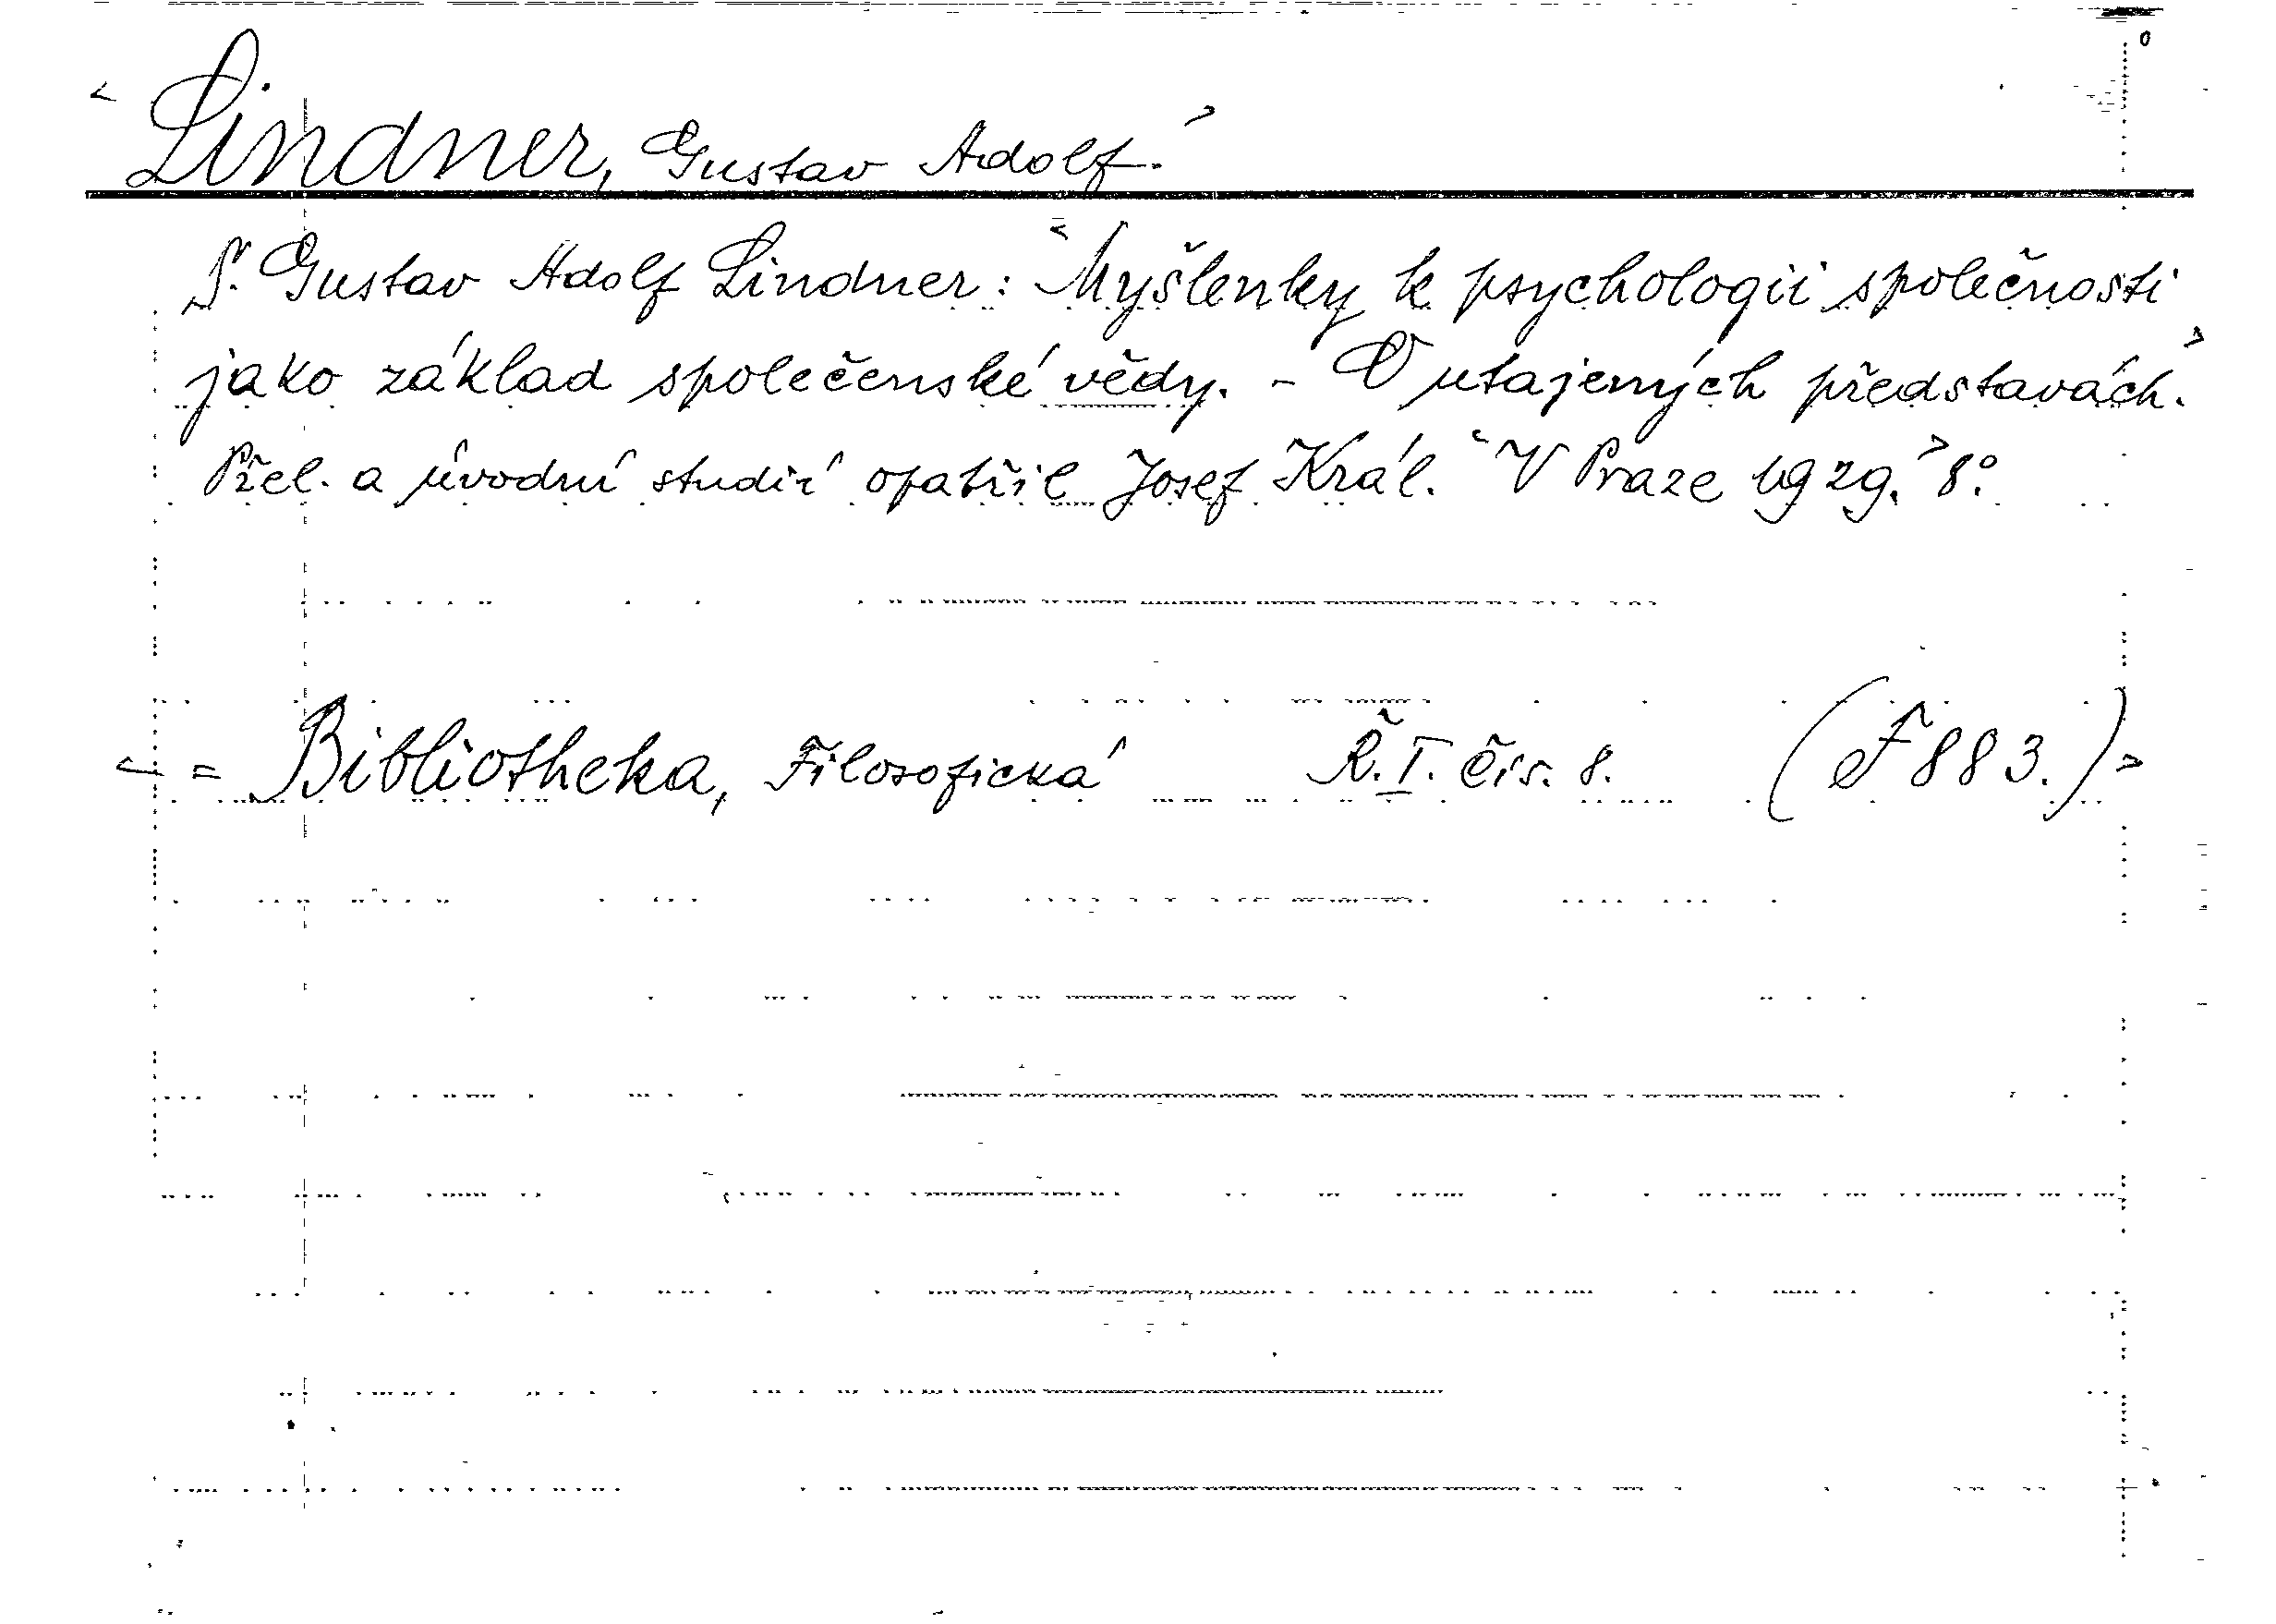 <Lindner, Gustav Adolf.>
§. Gustav Adolf Lindner: <Myšlenky k psychologii společnosti
jako základ společenské vědy. - O utajených představách.>
Přel. a úvodní studií opatřil Josef Král. <V Praze 1929.> 8°.
<= Bibliotheka, Filosofická Ř. I. čís. 8. (F 883.)>